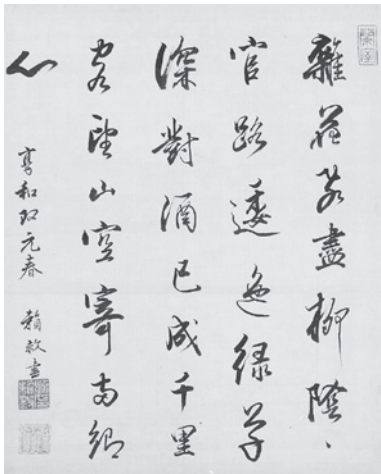 雜花飛盡柳陰、
官路逶迤綠草
深對酒已成千里
客望山空寄兩鄉
心
享和改元春 賴書